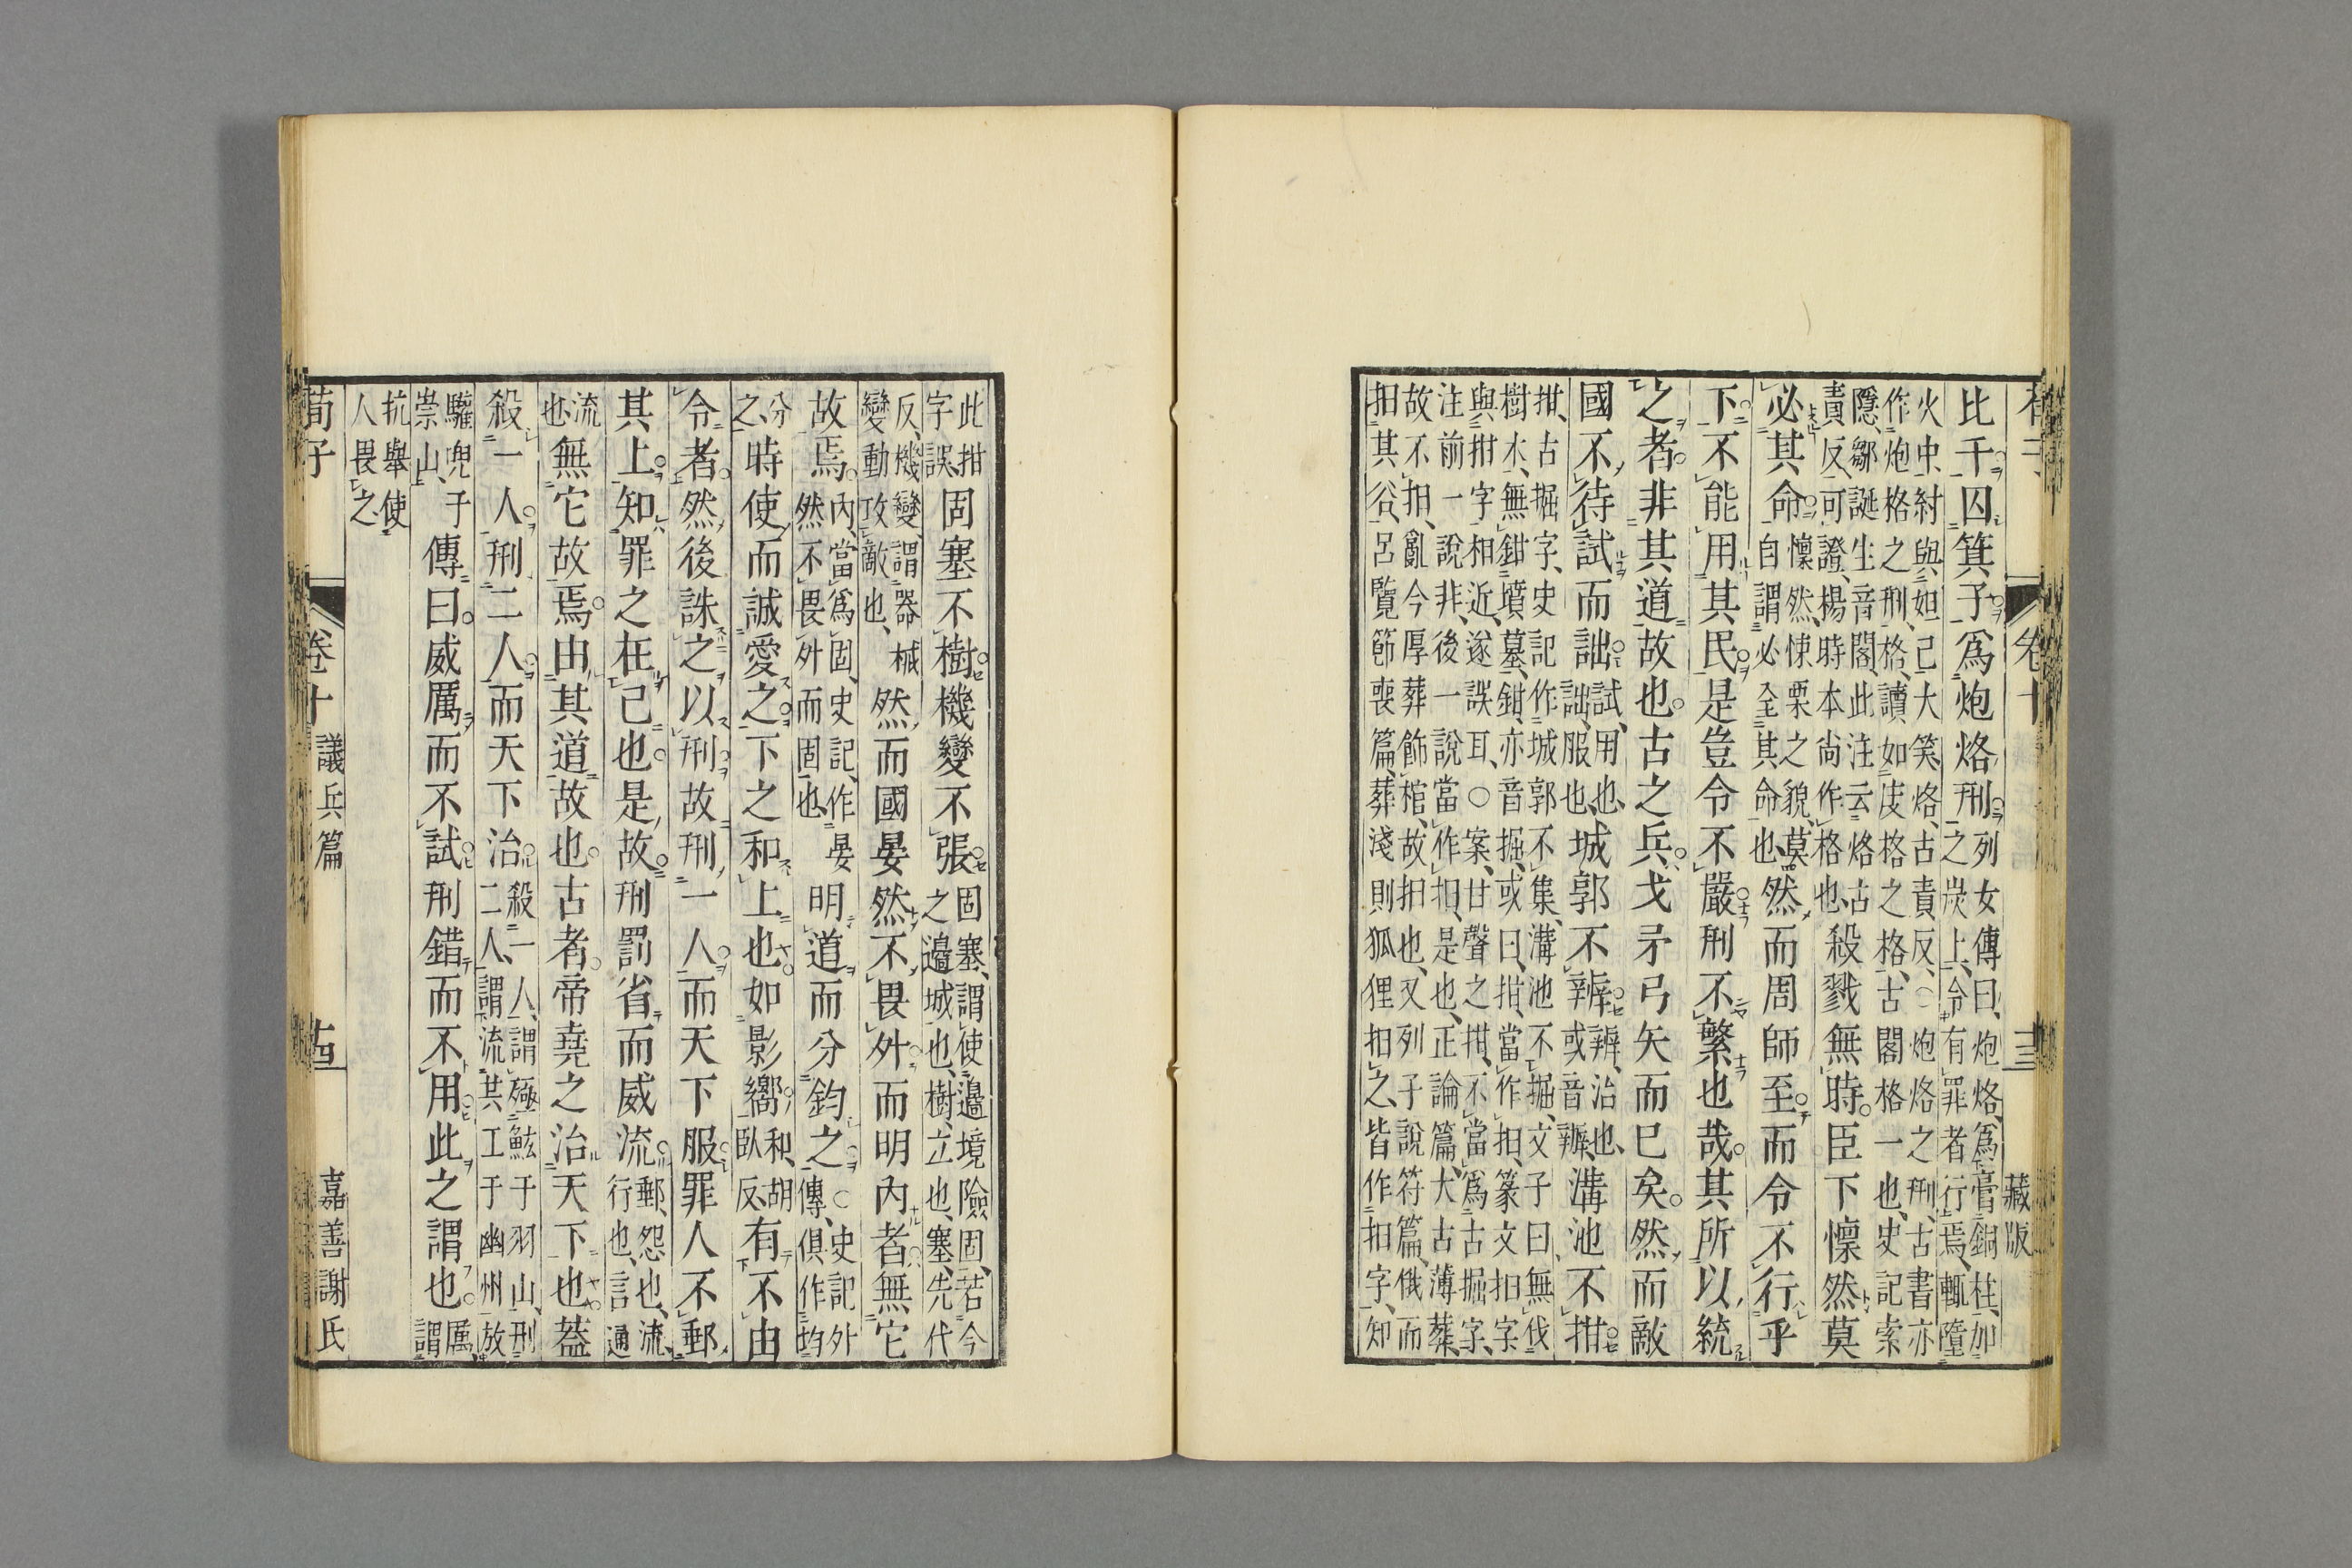 卷十 十三 藏版
比干囚箕子爲炮烙刑列女傳曰炮烙爲膏銅柱加之炭上令有罪者行焉輒墮
火中紂與妲己大笑烙古責反○炮烙之刑古書亦
作炮格之刑格讀如庋格之格古閣格一也史記索
隱鄒誕生音閣此注云烙古責反可證楊時本尚作格也殺戮無時臣下懍然莫
必其命懍然悚栗之貌莫自謂必全其命也然而周師至而令不行乎
下不能用其民是豈令不嚴刑不繁也哉其所以統
之者非其道故也古之兵戈矛弓矢而已矣然而敵
國不待試而詘試用也詘服也城郭不辨辨治也或音辦溝池不拑
拑古掘字史記作城郭不集溝池不掘文子曰無伐
樹木無鉗墳墓鉗亦音掘或曰拑當作抇篆文抇字
與拑字相近遂誤耳○案甘聲之拑不當爲古掘字
注前一說非後一說當作抇是也正論篇大古薄葬
故不抇亂今厚葬飾棺故抇也又列子說符篇俄而
抇其谷呂覽節喪篇葬淺則狐狸抇之皆作抇字知
此拑字誤固塞不樹機變不張固塞謂使邊境險固若今之邊城也樹立也塞先代
反機變謂器械變動攻敵也然而國晏然不畏外而明內者無它
故焉內當爲固史記作晏然不畏外而固也明道而分鈞之○史記外傳俱作均
分之時使而誠愛之下之和上也如影嚮和胡臥反有不由
令者然後誅之以刑故刑一人而天下服罪人不郵
其上知罪之在己也是故刑罰省而威流郵怨也流行也言通
流也無它故焉由其道故也古者帝堯之治天下也葢
殺一人刑二人而天下治殺一人謂殛鯀于羽山刑二人謂流共工于幽州放
驩兜于崇山傳曰威厲而不試刑錯而不用此之謂也厲謂
抗舉使人畏之
荀子 卷十 議兵篇 十四 嘉善謝氏